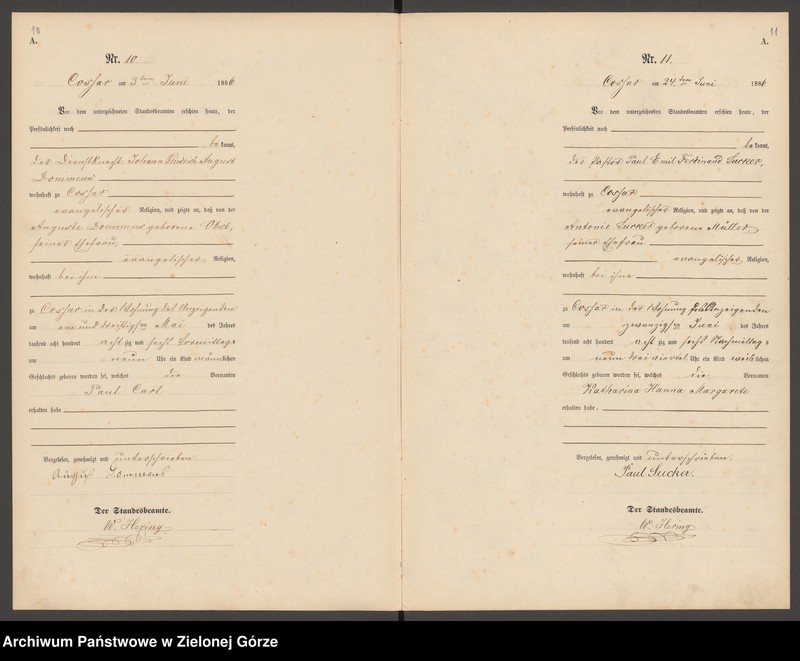 10
A.
Nr. 10.
Cossar am 3ten Juni 1886
Vor dem unterzeichneten Standesbeamten erschien heute, der
Persönlichkeit nach
be kannt,
der Dienstknecht Johann Friedrich August
wohnhaft zu Cossar
evangelischer Religion, und zeigte an, daß von der
Auguste geborene Obst,
seiner Ehefrau,
evangelischer Religion,
wohnhaft bei ihm
zu Cossar in der Wohnung des Anzeigenden
am ein und dreißigsten Mai des Jahres
tausend acht hundert acht zig und sechs Vormittags
um neun Uhr ein Kind männlichen
Geschlechts geboren worden sei, welches die Vornamen
Paul Carl
erhalten habe
Vorgelesen, genehmigt und unterschrieben
August
Der Standesbeamte.
W. Hering
11
A.
Nr. 11.
Cossar am 24ten Juni 1886
Vor dem unterzeichneten Standesbeamten erschien heute, der
Persönlichkeit nach
be kannt,
der Pastor Paul Emil Ferdinand Sucker,
wohnhaft zu Cossar
evangelischer Religion, und zeigte an, daß von der
Antonie Sucker geborene Müller
seiner Ehefrau
evangelischer Religion,
wohnhaft bei ihm
zu Cossar in der Wohnung des Anzeigenden
am zwanzigsten Juni des Jahres
tausend acht hundert acht zig und sechs Nachmittag s
um neun drei viertel Uhr ein Kind weib lichen
Geschlechts geboren worden sei, welches die Vornamen
Katharina Hanna Margarete
erhalten habe.
Vorgelesen, genehmigt und unterschrieben.
Paul Sucker.
Der Standesbeamte.
W. Hering
Archiwum Państwowe w Zielonej Górze